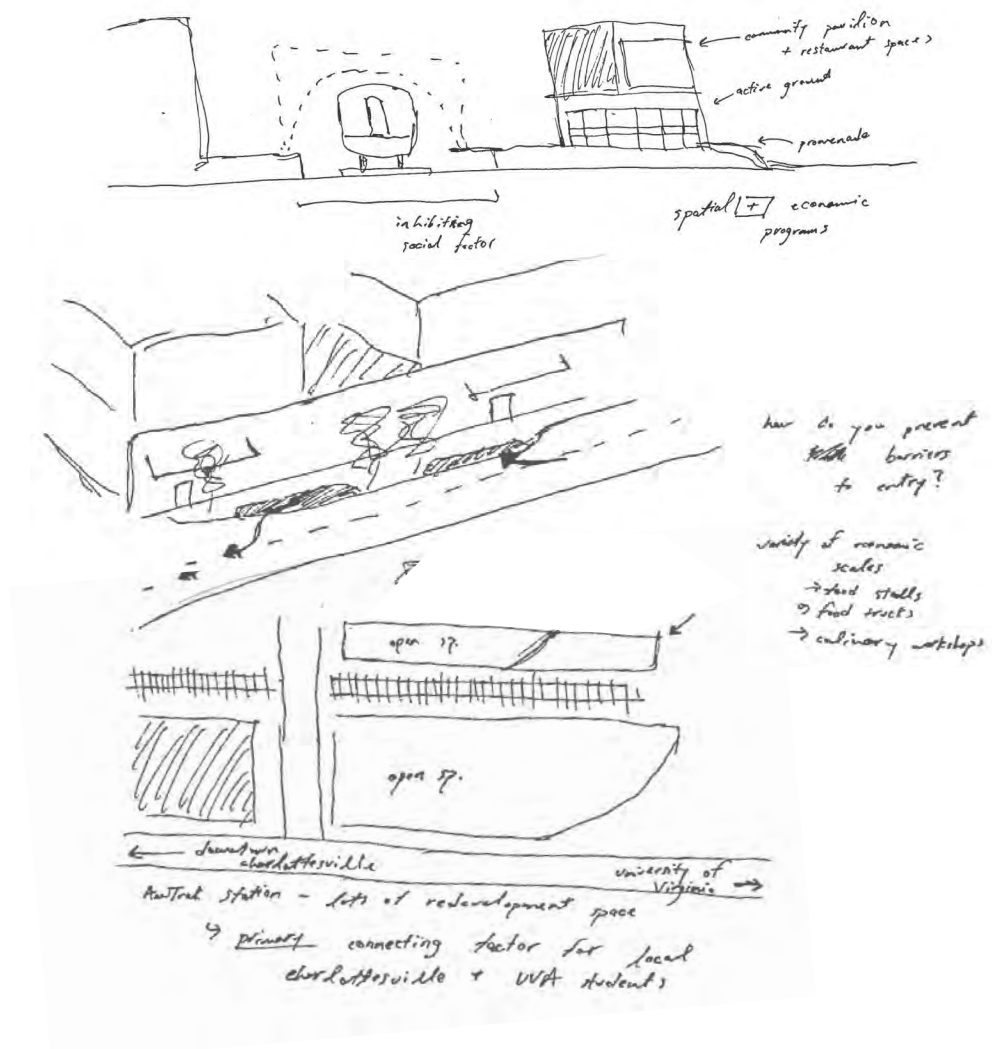 community pavilion
+ restaurant spaces
active ground
promenade
inhibiting
social factor
spatial + economic
programs
how do you prevent
barriers
to entry?
variety of economic
scales
→ food stalls
→ food trucks
→ culinary workshops
open sp.
open sp.
← downtown
charlottesville
university of
Virginia →
AmTrak station - lots of redevelopment space
↳ primary connecting factor for local
charlottesville + UVA students